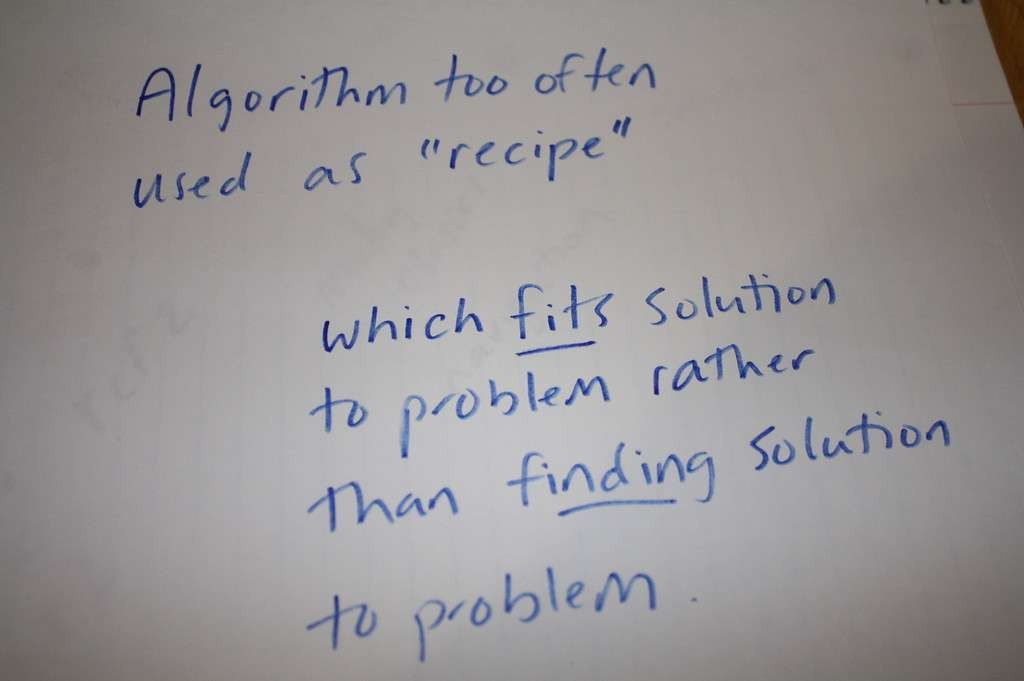 Algorithm too often
used as "recipe"
which fits solution
to problem rather
than finding solution
to problem.